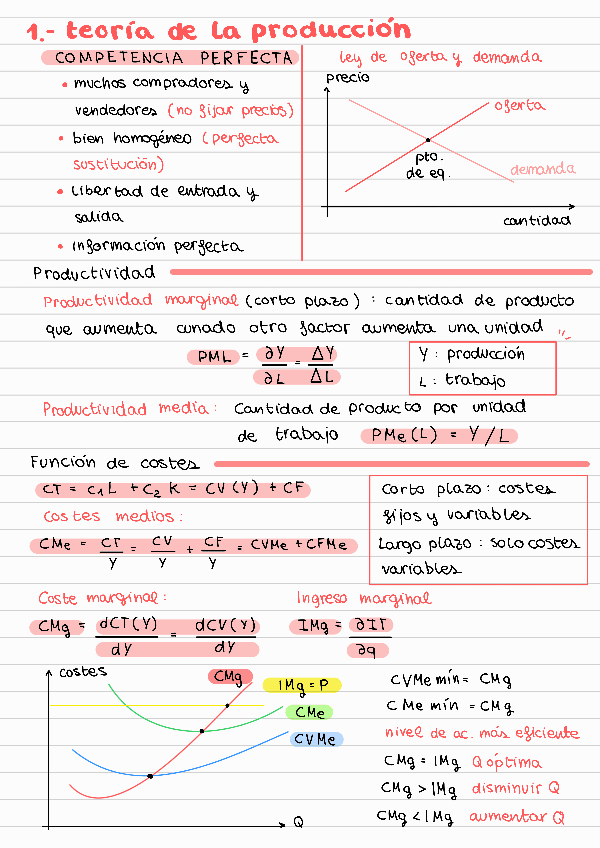 1.- teoría de la producción
COMPETENCIA PERFECTA
• muchos compradores y
vendedores (no fijar precios)
• bien homogéneo (perfecta
sustitución)
• libertad de entrada y
salida
• información perfecta
ley de oferta y demanda
precio
oferta
pto.
de eq.
demanda
cantidad
Productividad
Productividad marginal (corto plazo) : cantidad de producto
que aumenta cunado otro factor aumenta una unidad
PML = ∂Y/∂L = ΔY/ΔL
Y : producción
L : trabajo
Productividad media: Cantidad de producto por unidad
de trabajo PMe(L) = Y/L
Función de costes
CT = C1 L + C2 K = CV(Y) + CF
Costes medios:
CMe = CT/Y = CV/Y + CF/Y = CVMe + CFMe
Corto plazo: costes
fijos y variables
Largo plazo: solo costes
variables
Coste marginal:
CMg = dCT(Y)/dY = dCV(Y)/dY
Ingreso marginal
IMg = ∂IT/∂q
costes
CMg
IMg = P
CMe
CVMe
Q
CVMe mín = CMg
CMe mín = CMg
nivel de ac. más eficiente
CMg = IMg Q óptima
CMg > IMg disminuir Q
CMg < IMg aumentar Q